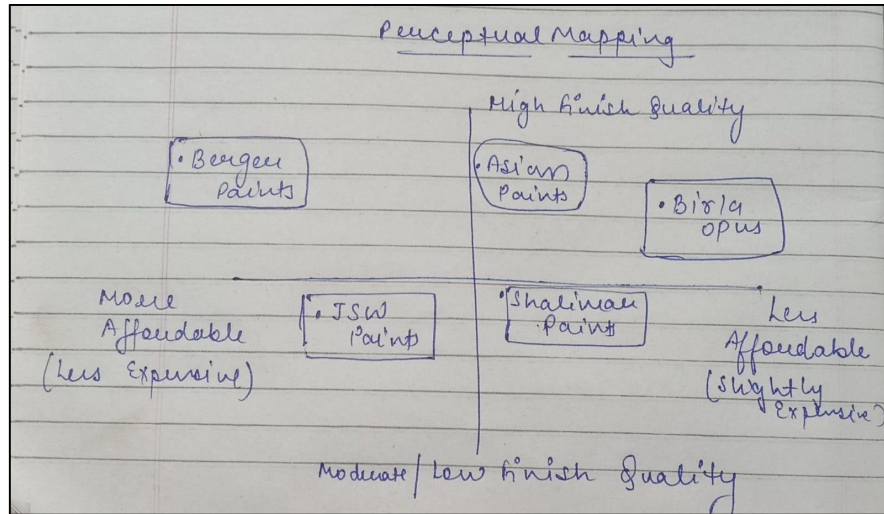 Perceptual Mapping
High Finish Quality
• Berger
Paints
• Asian
Paints
• Birla
opus
More
Affordable
(Less Expensive)
• JSW
Paints
• Shalimar
Paints
Less
Affordable
(Slightly
Expensive)
Moderate/Low Finish Quality